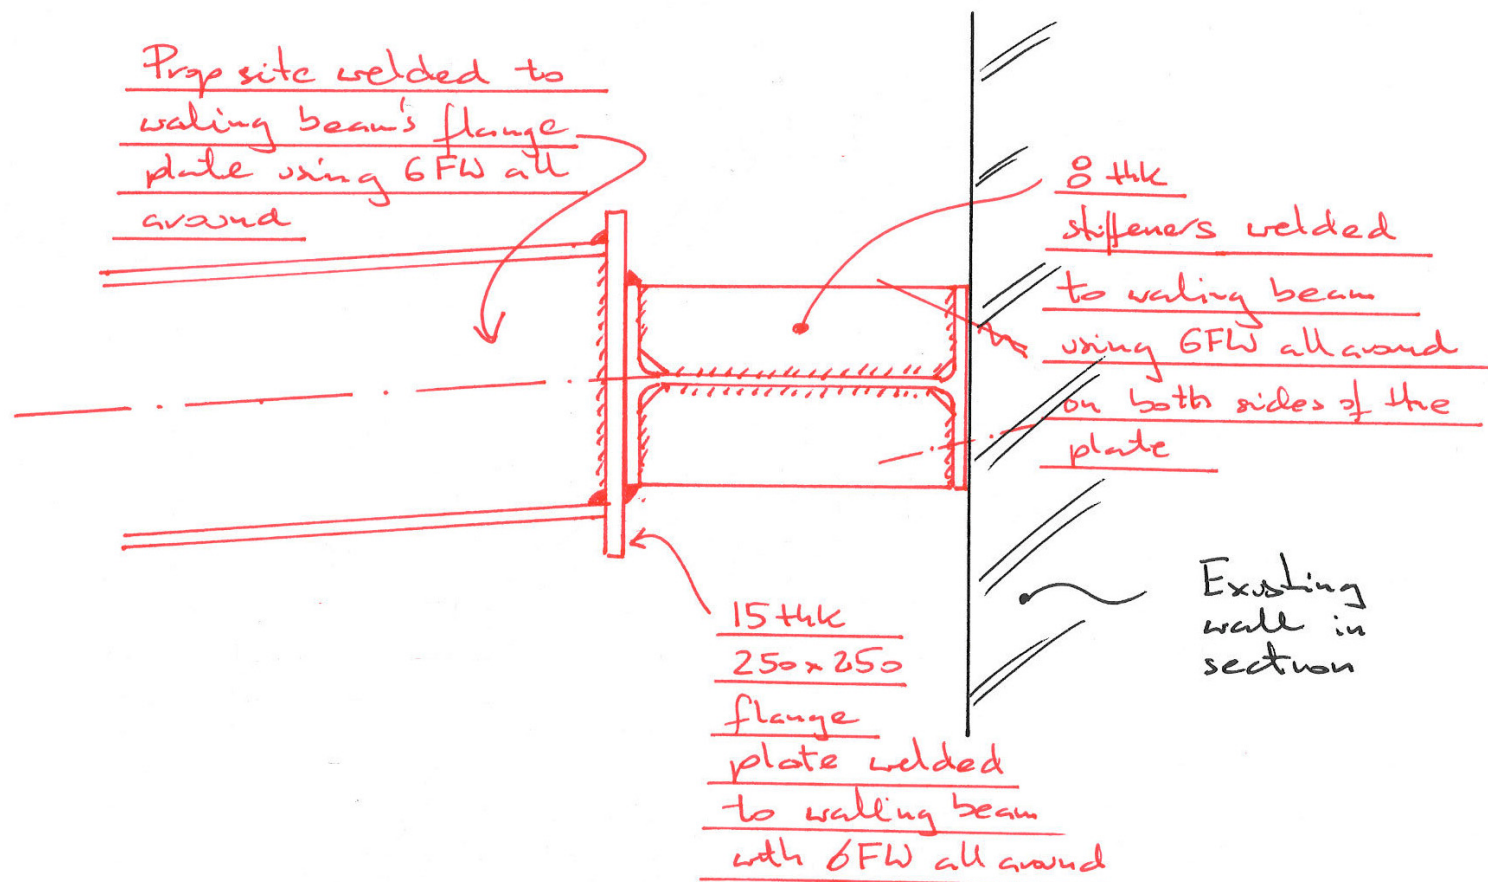 Prop site welded to
waling beam's flange
plate using 6FW all
around
8 thk
stiffeners welded
to waling beam
using 6FW all around
on both sides of the
plate
15 thk
250 x 250
flange
plate welded
to waling beam
with 6FW all around
Existing
wall in
section